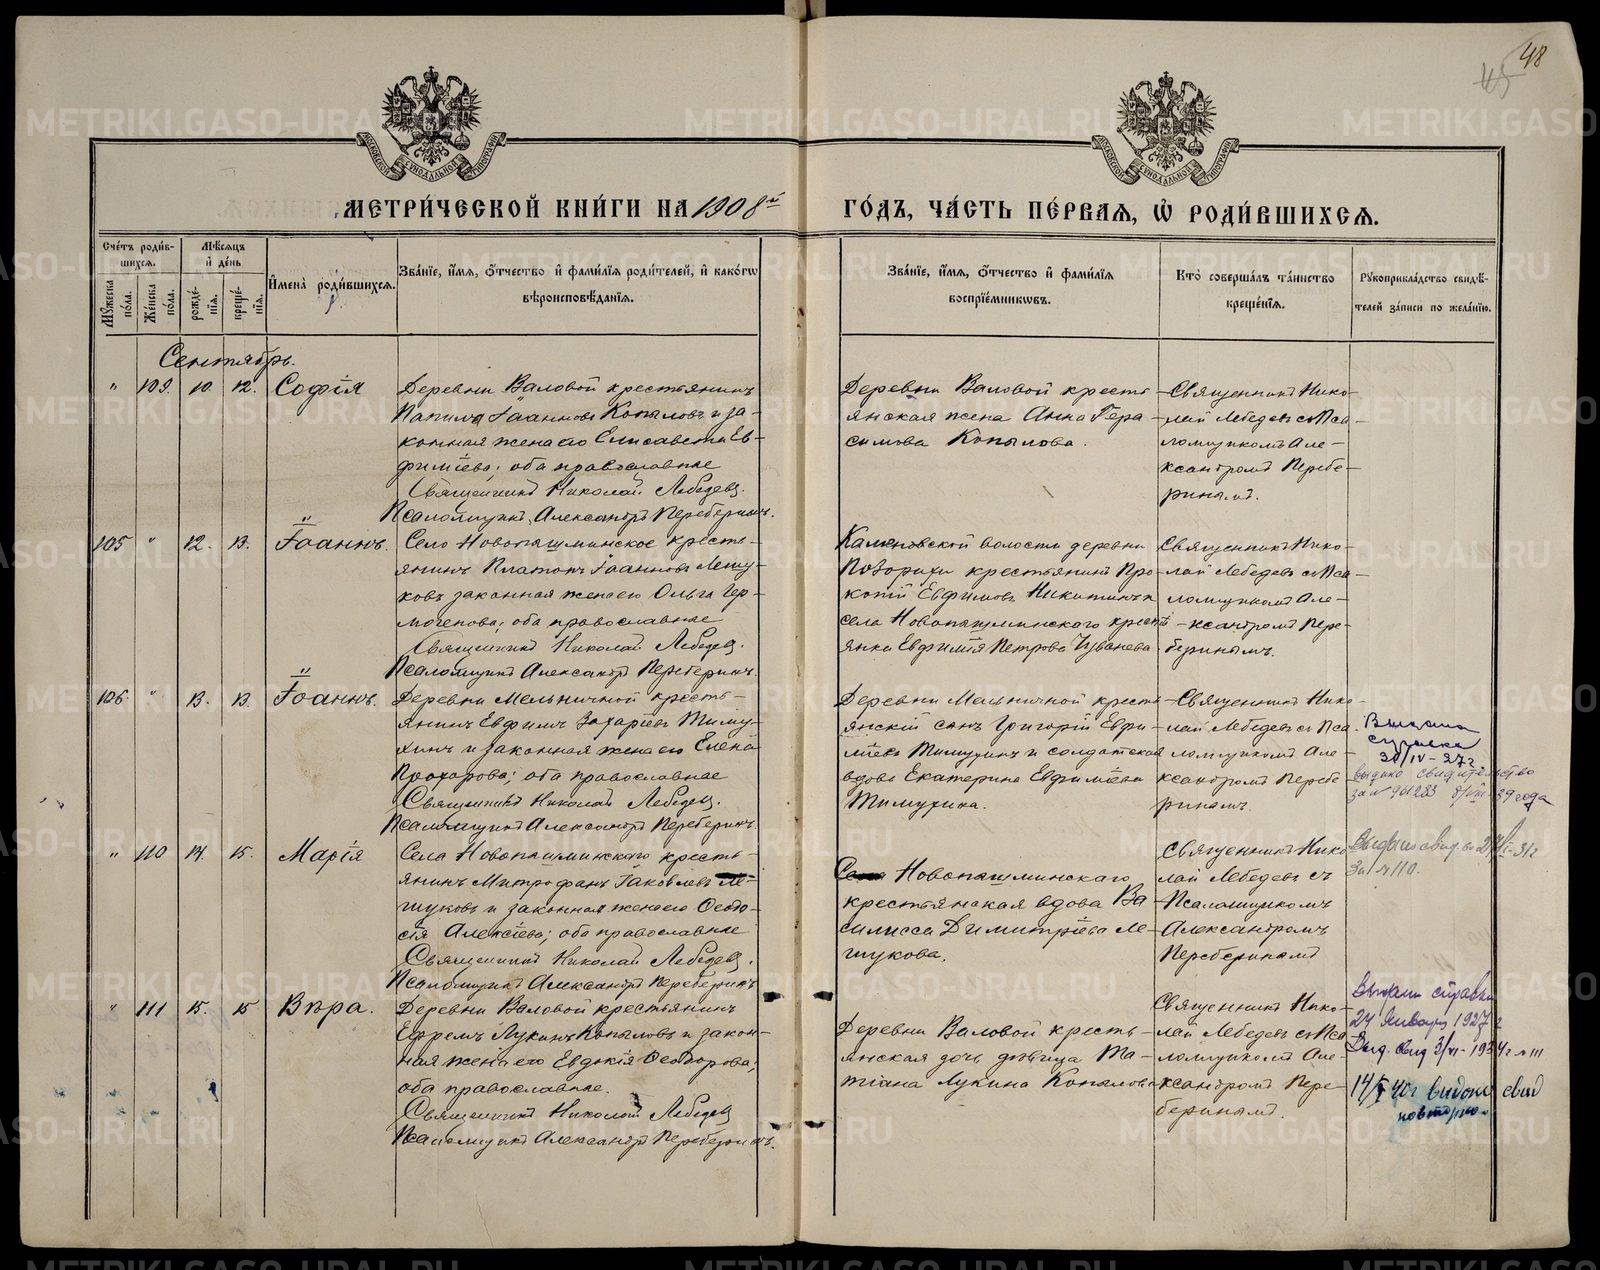 48
45
МОСКОВСКОЙ СѴНОДАЛЬНОЙ ТИПОГРАФІИ
МОСКОВСКОЙ СѴНОДАЛЬНОЙ ТИПОГРАФІИ
МЕТРИ́ЧЕСКОЙ КНИ́ГИ НА 1908й
ГО́ДЪ, ЧА́СТЬ ПЕ́РВАЯ, Ѡ҆ РОДИ́ВШИХСЯ.
Сче́тъ роди́в-
шихся.
Мѣ́сяцъ
и҆ де́нь
Му́жеска по́ла.
Же́нска по́ла.
рожде́-
нїя.
креще́-
нїя.
И҆мена̀ роди́вшихся.
Зва́нїе, и҆́мя, ѻ҆́тчество и҆ фами́лїя роди́телей, и҆ како́гѡ
вѣроисповѣ́данїя.
Зва́нїе, и҆́мя, ѻ҆́тчество и҆ фами́лїя
воспрїе́мникѡвъ.
Кто̀ соверша́лъ та́инство
креще́нїя.
Рукоприкла́дство свидѣ́-
телей за́писи по жела́нїю.
Сентябрь.
" 109. 10. 12. Софія
Деревни Валовой крестьянинъ
Іоанновъ Копыловъ и за-
конная жена его Елисавета Ев-
фиміева; оба православные
Священникъ Николай Лебедевъ.
Псаломщикъ Александръ Переберинъ.
Деревни Валовой кресть-
янская жена Анна Гера-
симова Копылова.
Священникъ Нико-
лай Лебедевъ съ Пса-
ломщикомъ Але-
ксандромъ Перебе-
ринымъ.
105 " 12. 13. Іоаннъ.
Село Новопышминское кресть-
янинъ Платонъ Іоанновъ Лешу-
ковъ законная жена его Ольга Гер-
могенова; оба православные
Священникъ Николай Лебедевъ.
Псаломщикъ Александръ Переберинъ.
Каменовской волости деревни
крестьянинъ Про-
копій Евфимовъ Никитинъ и
села Новопышминского кресть-
янка Евфимія Петрова Чуванева
Священникъ Нико-
лай Лебедевъ съ Пса-
ломщикомъ Але-
ксандромъ Пере-
беринымъ.
106. " 13. 13. Іоаннъ.
Деревни Мельничной кресть-
янинъ Евфимъ Захаріевъ Тиму-
хинъ и законная жена его Елена
Прохорова; оба православные
Священникъ Николай Лебедевъ.
Псаломщикъ Александръ Переберинъ.
Деревни Мельничной кресть-
янскій сынъ Григорій Евфи-
міевъ и солдатская
вдова Екатерина Евфиміева
Священникъ Нико-
лай Лебедевъ съ Пса-
ломщикомъ Але-
ксандромъ Перебе-
ринымъ.
Выдана
справка
30/IV-27г
выдано свидетельство
39 года
" 110 14. 15. Марія
Села Новопышминского кресть-
янинъ Митрофанъ Іаковлевъ Ле-
шуковъ и законная жена его Ѳеодо-
сія Алексіева; оба православные
Священникъ Николай Лебедевъ.
Псаломщикъ Александръ Переберинъ
Села Новопышминскаго
крестьянская вдова Ва-
силисса Димитріева Ле-
шукова.
Священникъ Нико-
лай Лебедевъ съ
Псаломщикомъ
Александромъ
Переберинымъ
Выдано свид.
за № 110.
" 111 15. 15 Вѣра.
Деревни Валовой крестьянинъ
Ефремъ Лукинъ Копыловъ и закон-
ная жена его Евдокія Ѳеодорова;
оба православные.
Священникъ Николай Лебедевъ
Псаломщикъ Александръ Переберинъ.
Деревни Валовой кресть-
янская дочь дѣвица Та-
тіана Лукина Копылова
Священникъ Нико-
лай Лебедевъ съ Пса-
ломщикомъ Але-
ксандромъ Пере-
беринымъ.
Выдана справка
24 января 1927 г
Выд. свид 3/VI-1934 г № 111
14/I 40г выдано свид
повторно
METRIKI.GASO-URAL.RU